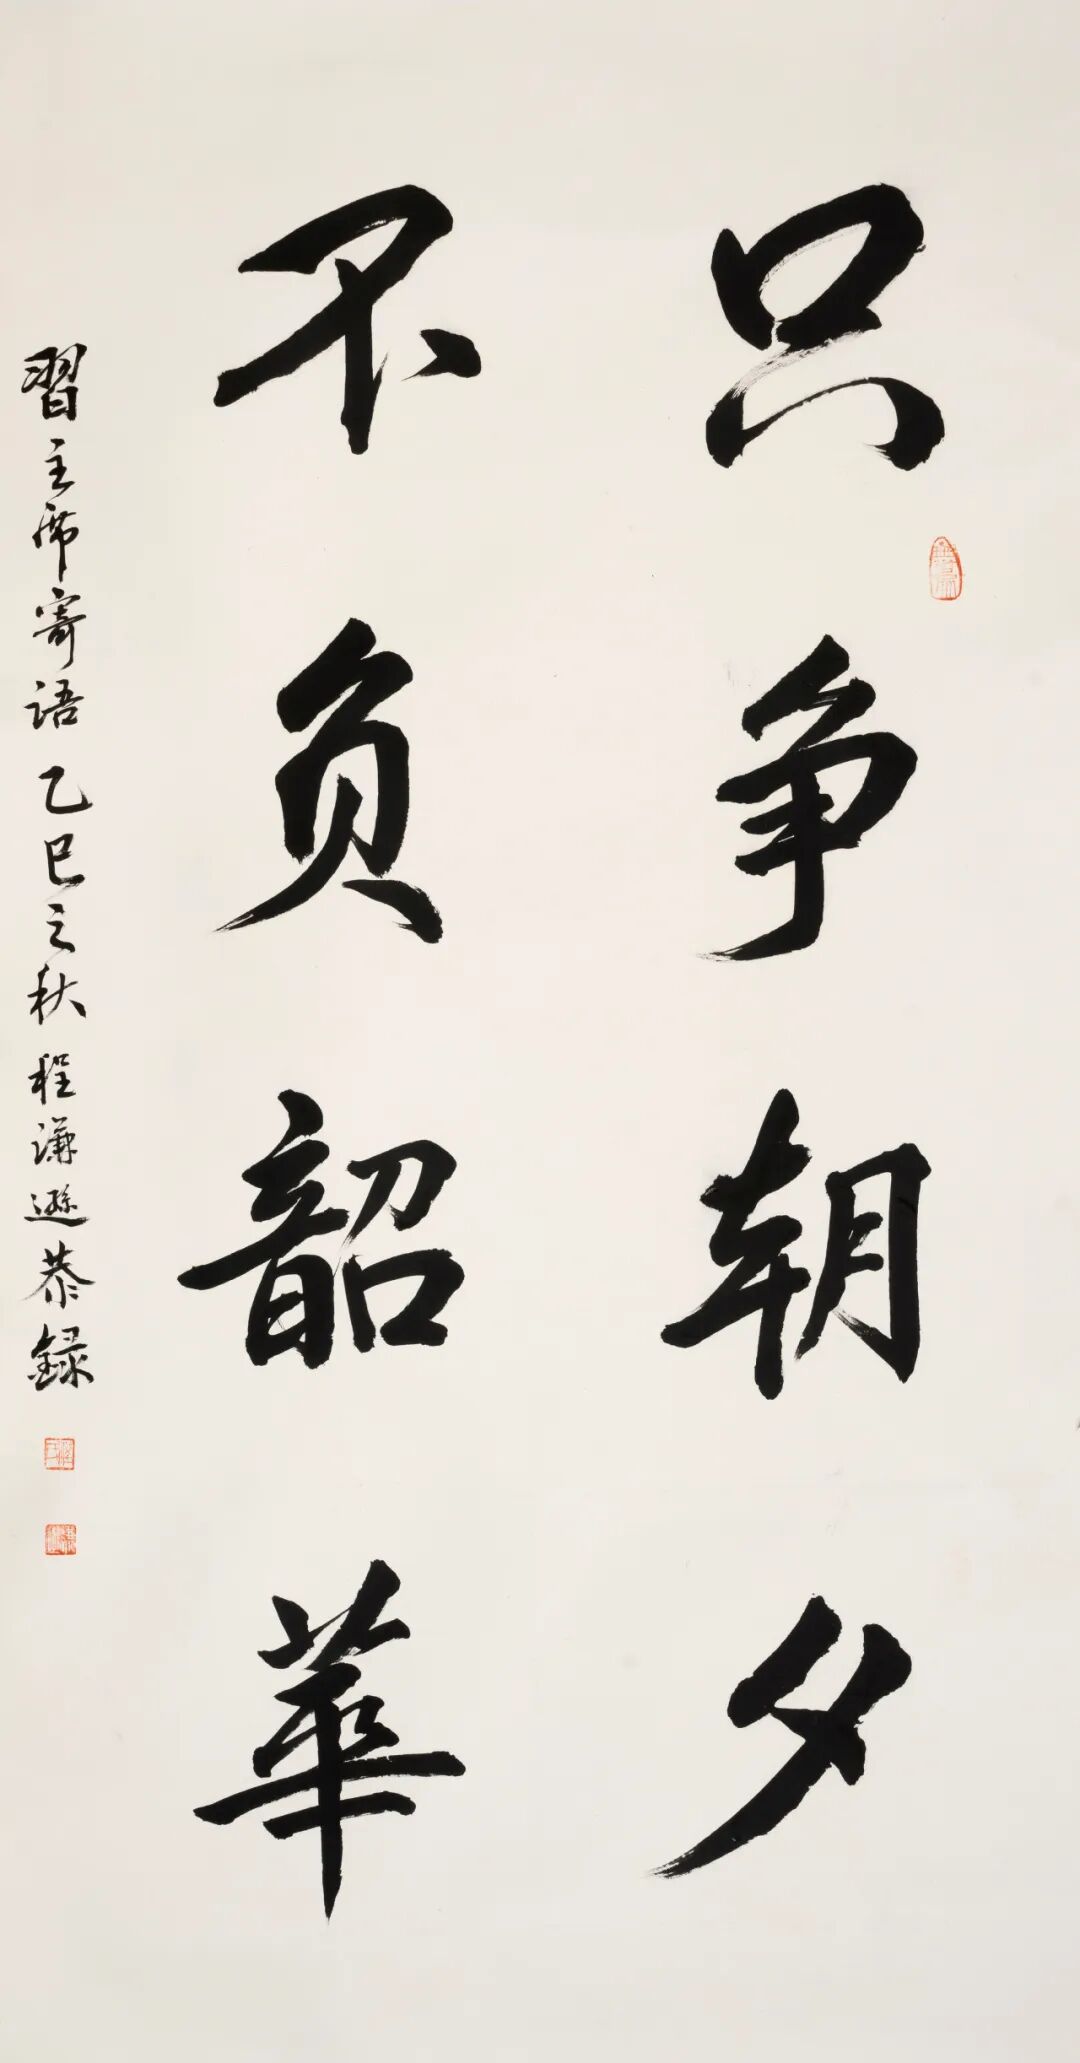 只争朝夕
不负韶華
習主席寄语 乙巳之秋 程謙遜恭録